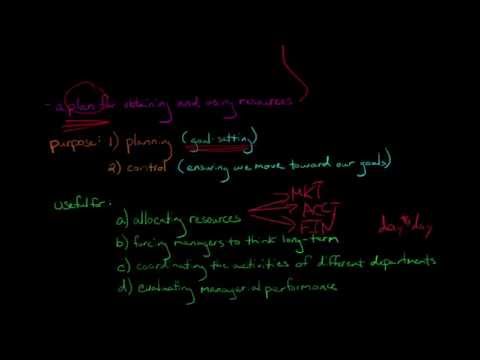 - a plan for obtaining and using resources
purpose: 1) planning (goal-setting)
2) control (ensuring we move toward our goals)
useful for:
MKT
a) allocating resources ACCT
FIN
day to day
b) forcing managers to think long-term
c) coordinating the activities of different departments
d) evaluating managerial performance